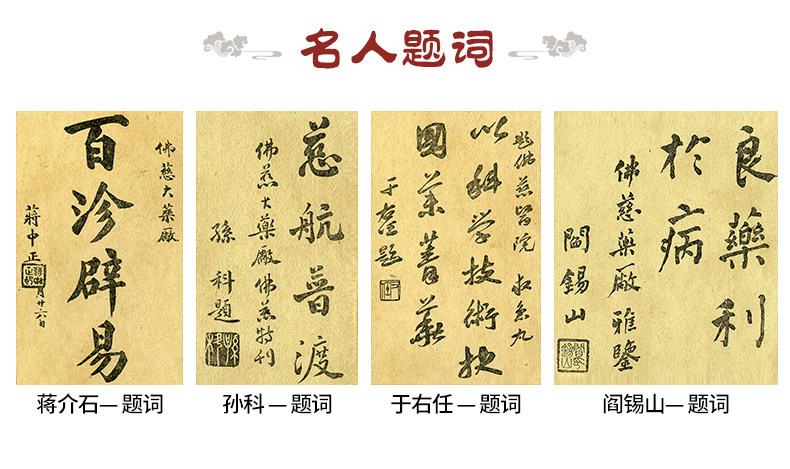 名人题词
佛慈大藥廠
百沴辟易
蔣中正
月廿六日
蒋介石—题词
慈航普渡
佛慈大藥廠佛慈特刊
孫科題
孙科—题词
題佛慈
以科学技術
國藥菁華
于右任—题词
良藥利
於病
佛慈藥廠雅鑒
閻錫山
阎锡山—题词